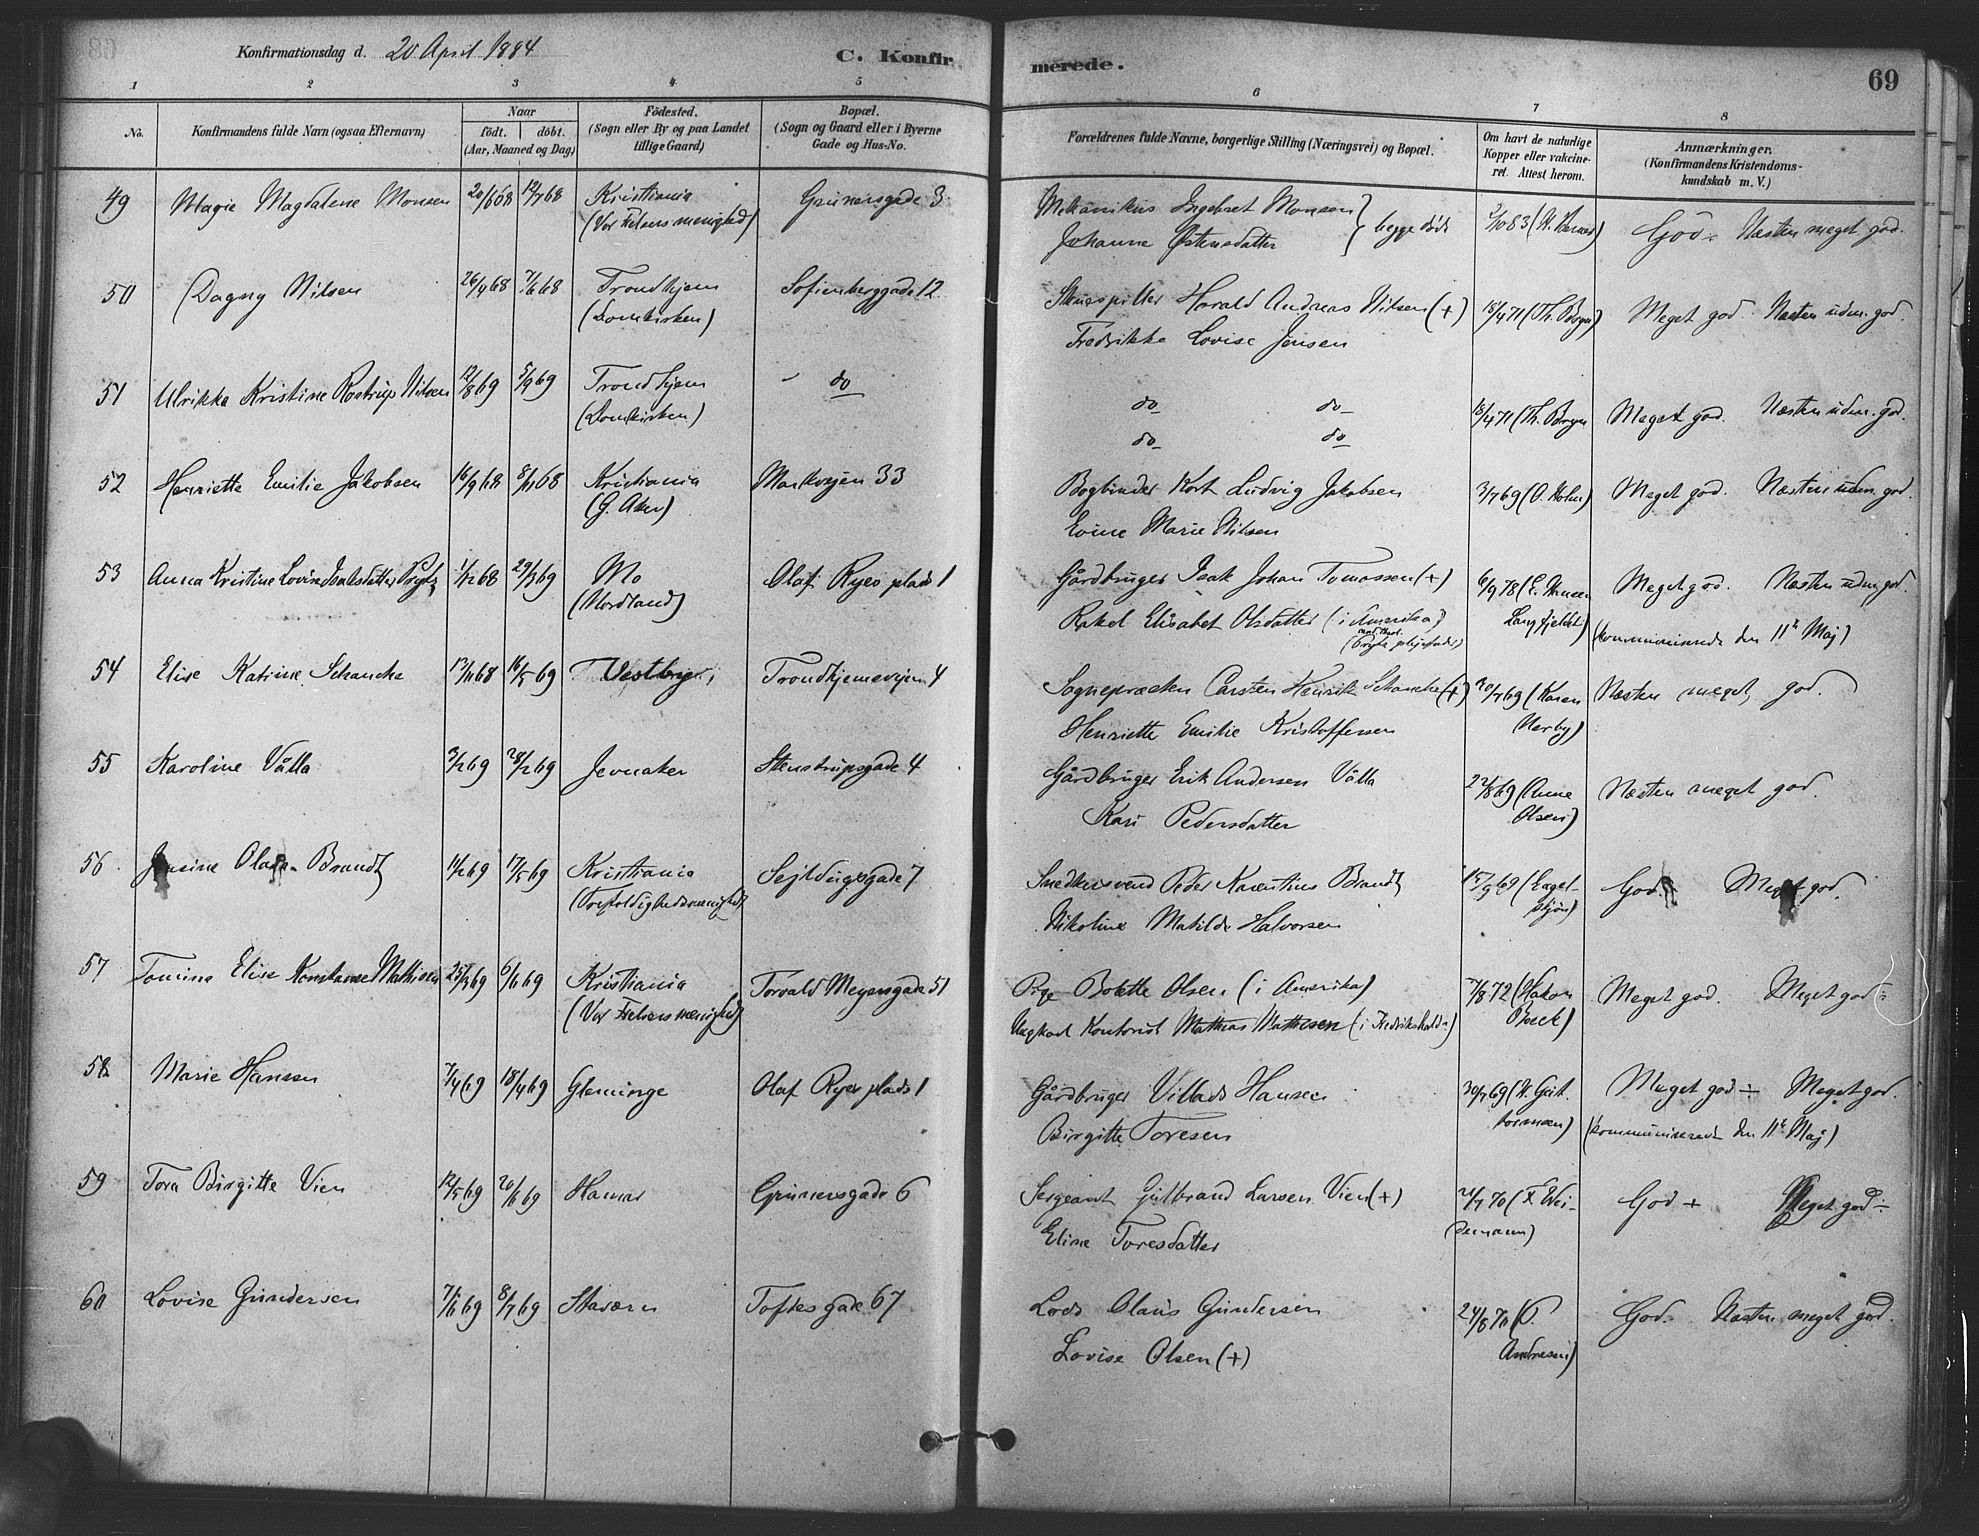 Konfirmationsdag d. 20 April 1884
C. Konfir merede. 69
1 2 3 4 5 6 7 8
No. Konfirmandens fulde Navn (ogsaa Efternavn) Naar født. døbt. (Aar, Maaned og Dag) Fødested. (Sogn eller By og paa Landet tillige Gaard) Bopæl. (Sogn og Gaard eller i Byerne Gade og Hus-No. Forældrenes fulde Navne, borgerlige Stilling (Næringsvei) og Bopæl. Om havt de naturlige Kopper eller vakcineret. Attest herom. Anmærkninger. (Konfirmandens Kristendomskundskab m. V.)
49 Magie Magdalene Monsen 20/6 68 12/7 68 Kristiania Grünersgade 3 Mekanikus Ingebret Monsen } begge døde 83 God ÷ Næsten meget god.
(Vor Frelsers menighed) Johanne Østensdatter
50 Dagny Nilsen 26/4 68 7/6 68 Trondhjem Sofienberggade 12 Skuespiller Harald Andreas Nilsen (+) 18/4 71 (Th. Borgen) Meget god Næsten udm. god.
(Domkirken) Fredrikke Lovise Jensen
51 Ulrikka Kristine Rostrup Nilsen 12/8 69 5/9 69 Trondhjem do do do 18/4 71 (Th. Borgen Meget god. Næsten udm. god.
(Domkirken) do do
52 Henriette Emilie Jakobsen 16/9 68 8/11 68 Kristiania Markvejen 33 Bogbinder Kort Ludvig Jakobsen 3/7 69 (O. Holm) Meget god. Næsten udm. god.
(G. Aker) Evine Marie Nilsen
53 Anna Kristine Lovise Isaksdatter Prytz 1/12 68 29/3 69 Mo Olaf Ryes plads 1 Gårdbruger Isak Johan Tomassen (+) 6/9 78 (E. Hansen Meget god. Næsten udm. god
(Nordland) Rakel Elisabet Olsdatter (i Amerika) Langfjeldet) (kommunicerede den 11te Maj)
54 Elise Katrine Schancke 13/11 68 16/5 69 Vestby Trondhjemsvejen 4 Sognepræsten Carsten Henrik Schancke (+) 20/7 69 (Karen Næsten meget god.
Henriette Emilie Kristoffersen Nerby)
55 Karoline Vålla 3/2 69 28/2 69 Jevnaker Stenstrupsgade 4 Gårdbruger Erik Andersen Vålla 22/8 69 (Anne Næsten meget god.
Kari Pedersdatter Olsen)
56 Brandt 17/5 69 Kristiania Sejldugsgade 7 Snedkersvend Peder Brandt 15/9 69 (Engelskjøn) God. Meget god.
(Trefoldighedsmenighed) Nikoline Matilde Halvorsen
57 Tomine Elise Konstanse Mathisen 25/3 69 6/6 69 Kristiania Torvald Meyersgade 51 Pige Bolette Olsen (i Amerika) 7/8 72 (Hakon Meget god. Meget god ÷
(Vor Frelsers menighed) Ungkarl Kontorist Mathias Mathisen (i Fredrikshald) Boeck)
58 Marie Hansen 7/4 69 18/4 69 Gleminge Olaf Ryes plads 1 Gårdbruger Villads Hansen 30/7 69 Meget god ÷ Meget god.
Birgitte Toresen (kommunicerede den 11te Maj)
59 Tora Birgitte Vien 12/5 69 20/6 69 Hamar Grünersgade 6 Sergeant Gulbrand Larsen Vien (+) 70 God + Meget god ÷
Eline Toresdatter
60 Lovise Gundersen 7/6 69 8/7 69 Stavern Toftesgade 67 Lods Olaus Gundersen 24/8 70 (O. God. Næsten meget god.
Lovise Olsen (+) Andresen)